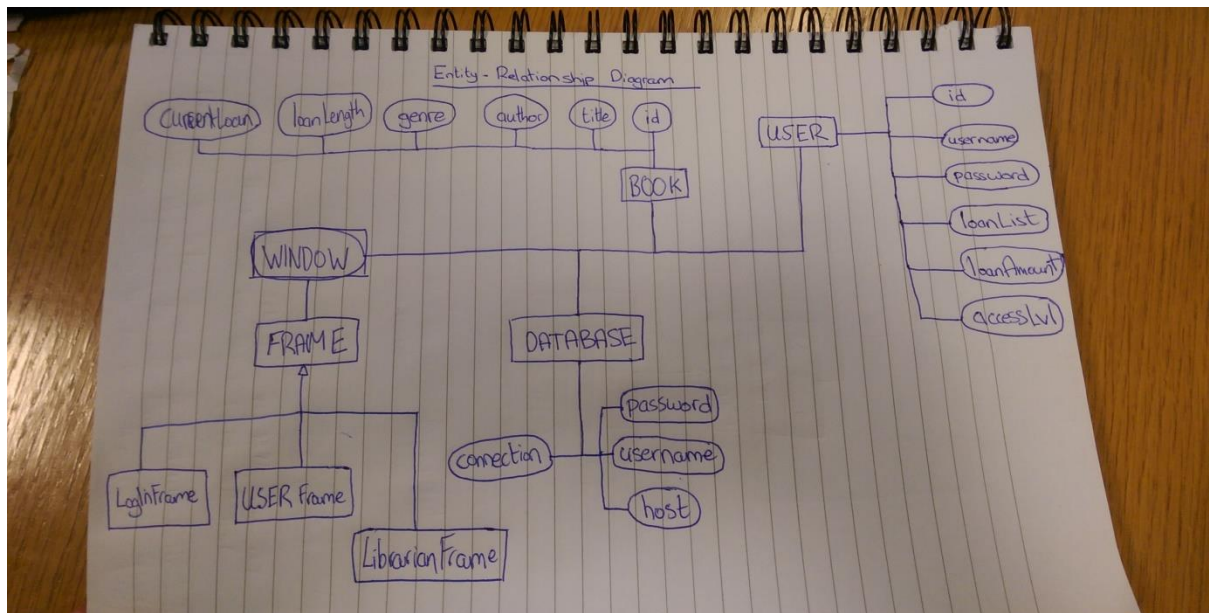 Entity-Relationship Diagram
currentLoan
loanLength
genre
author
title
id
BOOK
USER
id
username
password
loanList
loanAmount
accessLvl
WINDOW
FRAME
DATABASE
password
connection
username
host
LogInFrame
USER Frame
LibrarianFrame